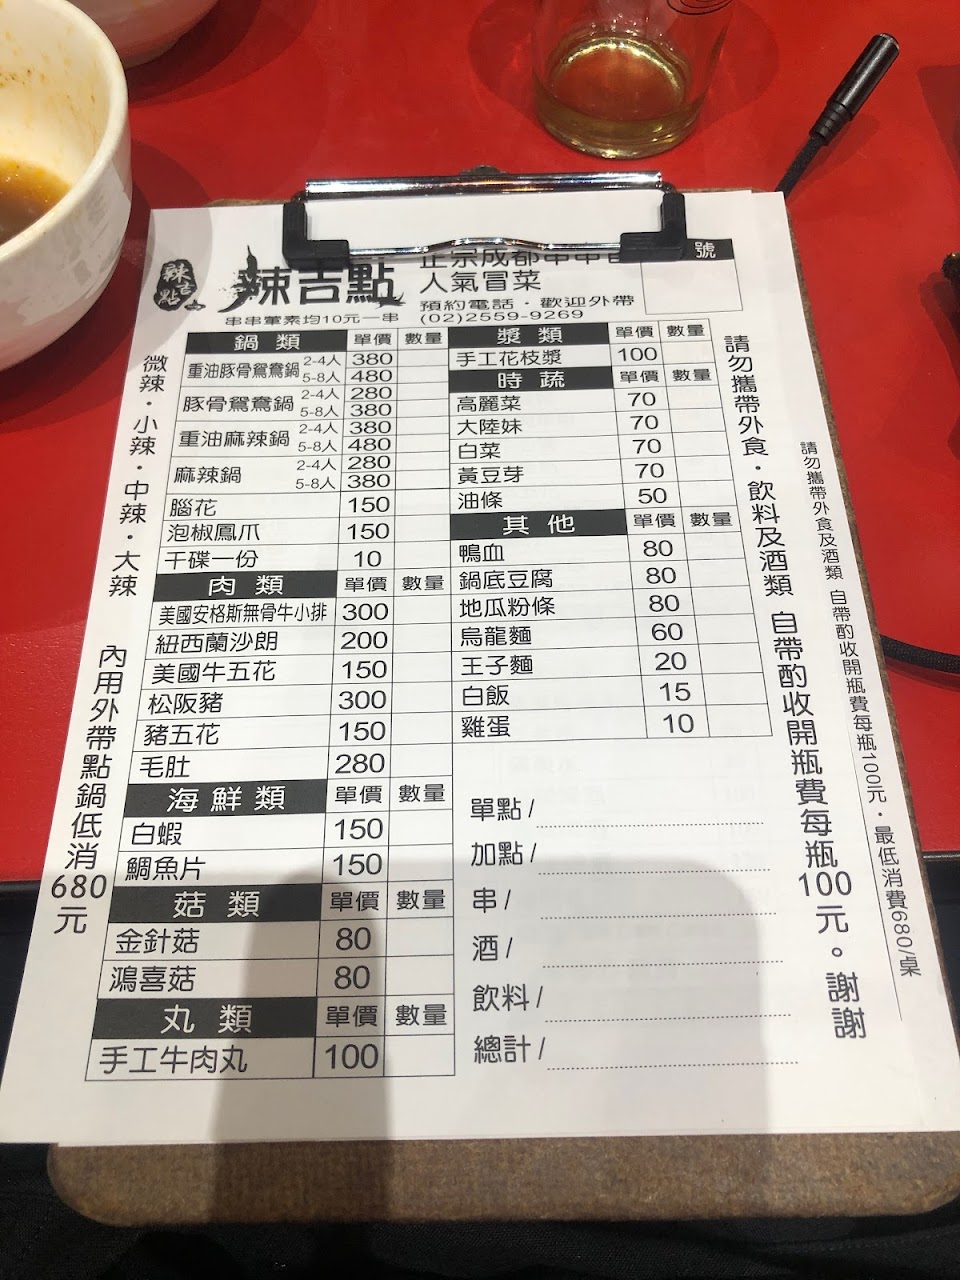 辣吉點
辣吉點
正宗成都串串
人氣冒菜
號
預約電話・歡迎外帶
(02)2559-9269
串串葷素均10元一串
微辣・小辣・中辣・大辣
內用外帶點鍋低消680元
鍋類 單價 數量
重油豚骨鴛鴦鍋 2-4人 380
5-8人 480
豚骨鴛鴦鍋 2-4人 280
5-8人 380
重油麻辣鍋 2-4人 380
5-8人 480
麻辣鍋 2-4人 280
5-8人 380
腦花 150
泡椒鳳爪 150
干碟一份 10
肉類 單價 數量
美國安格斯無骨牛小排 300
紐西蘭沙朗 200
美國牛五花 150
松阪豬 300
豬五花 150
毛肚 280
海鮮類 單價 數量
白蝦 150
鯛魚片 150
菇類 單價 數量
金針菇 80
鴻喜菇 80
丸類 單價 數量
手工牛肉丸 100
漿類 單價 數量
手工花枝漿 100
時蔬 單價 數量
高麗菜 70
大陸妹 70
白菜 70
黃豆芽 70
油條 50
其他 單價 數量
鴨血 80
鍋底豆腐 80
地瓜粉條 80
烏龍麵 60
王子麵 20
白飯 15
雞蛋 10
單點/
加點/
串/
酒/
飲料/
總計/
請勿攜帶外食・飲料及酒類 自帶酌收開瓶費每瓶100元。謝謝
請勿攜帶外食及酒類 自帶酌收開瓶費每瓶100元・最低消費680/桌